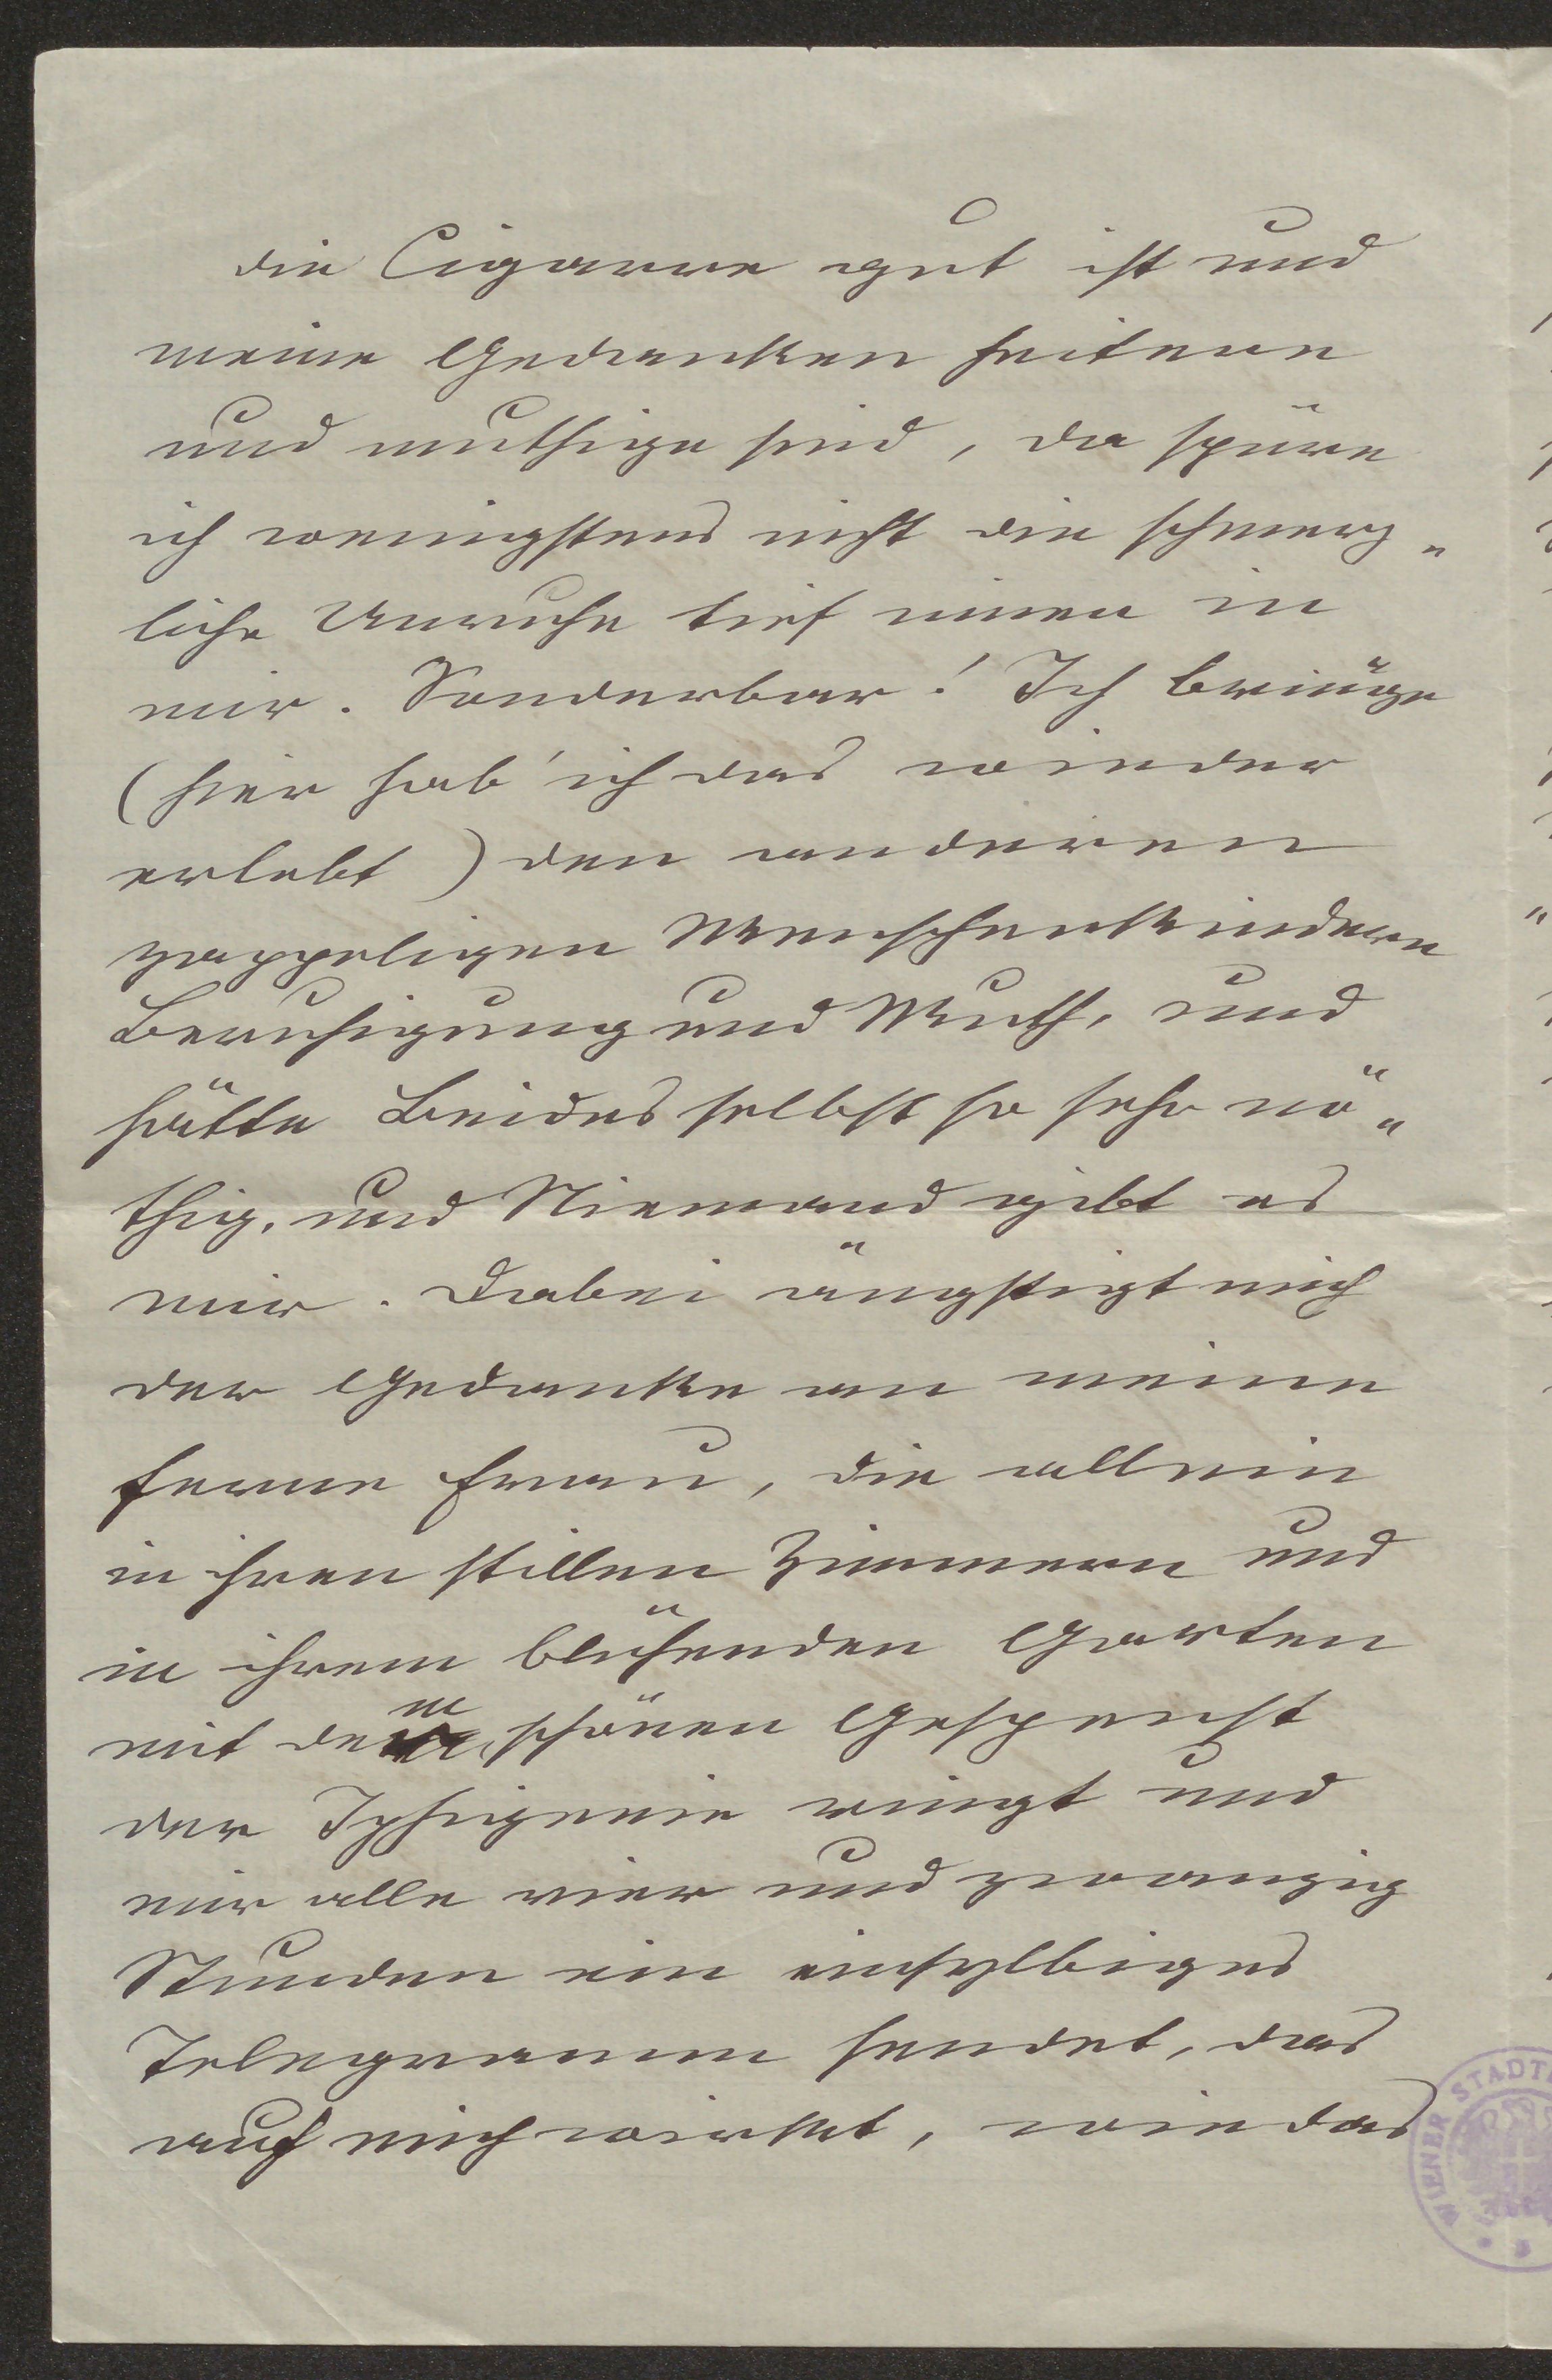 die Cigarre gut ist und
meine Gedanken heitere
und muthige sind, da spüre
ich wenigstens nicht die schmerz„
liche Unruhe tief innen in
mir. Sonderbar! Ich bringe
(hier hab' ich das wieder
erlebt) den anderen
zappeligen Menschenkindern
Beruhigung und Muth, und
hätte Beides selbst so sehr nö„
thig, und Niemand gibt es
mir. Dabei ängstigt mich
der Gedanke an meine
ferne Frau, die allein
in ihren stillen Zimmern und
in ihrem blühenden Garten
mit dem schönen Gespenst
der Iphigenie ringt und
mir alle vier und zwanzig
Stunden ein einsylbiges
Telegramm sendet, das
auf mich wirkt, wie das
WIENER STADT